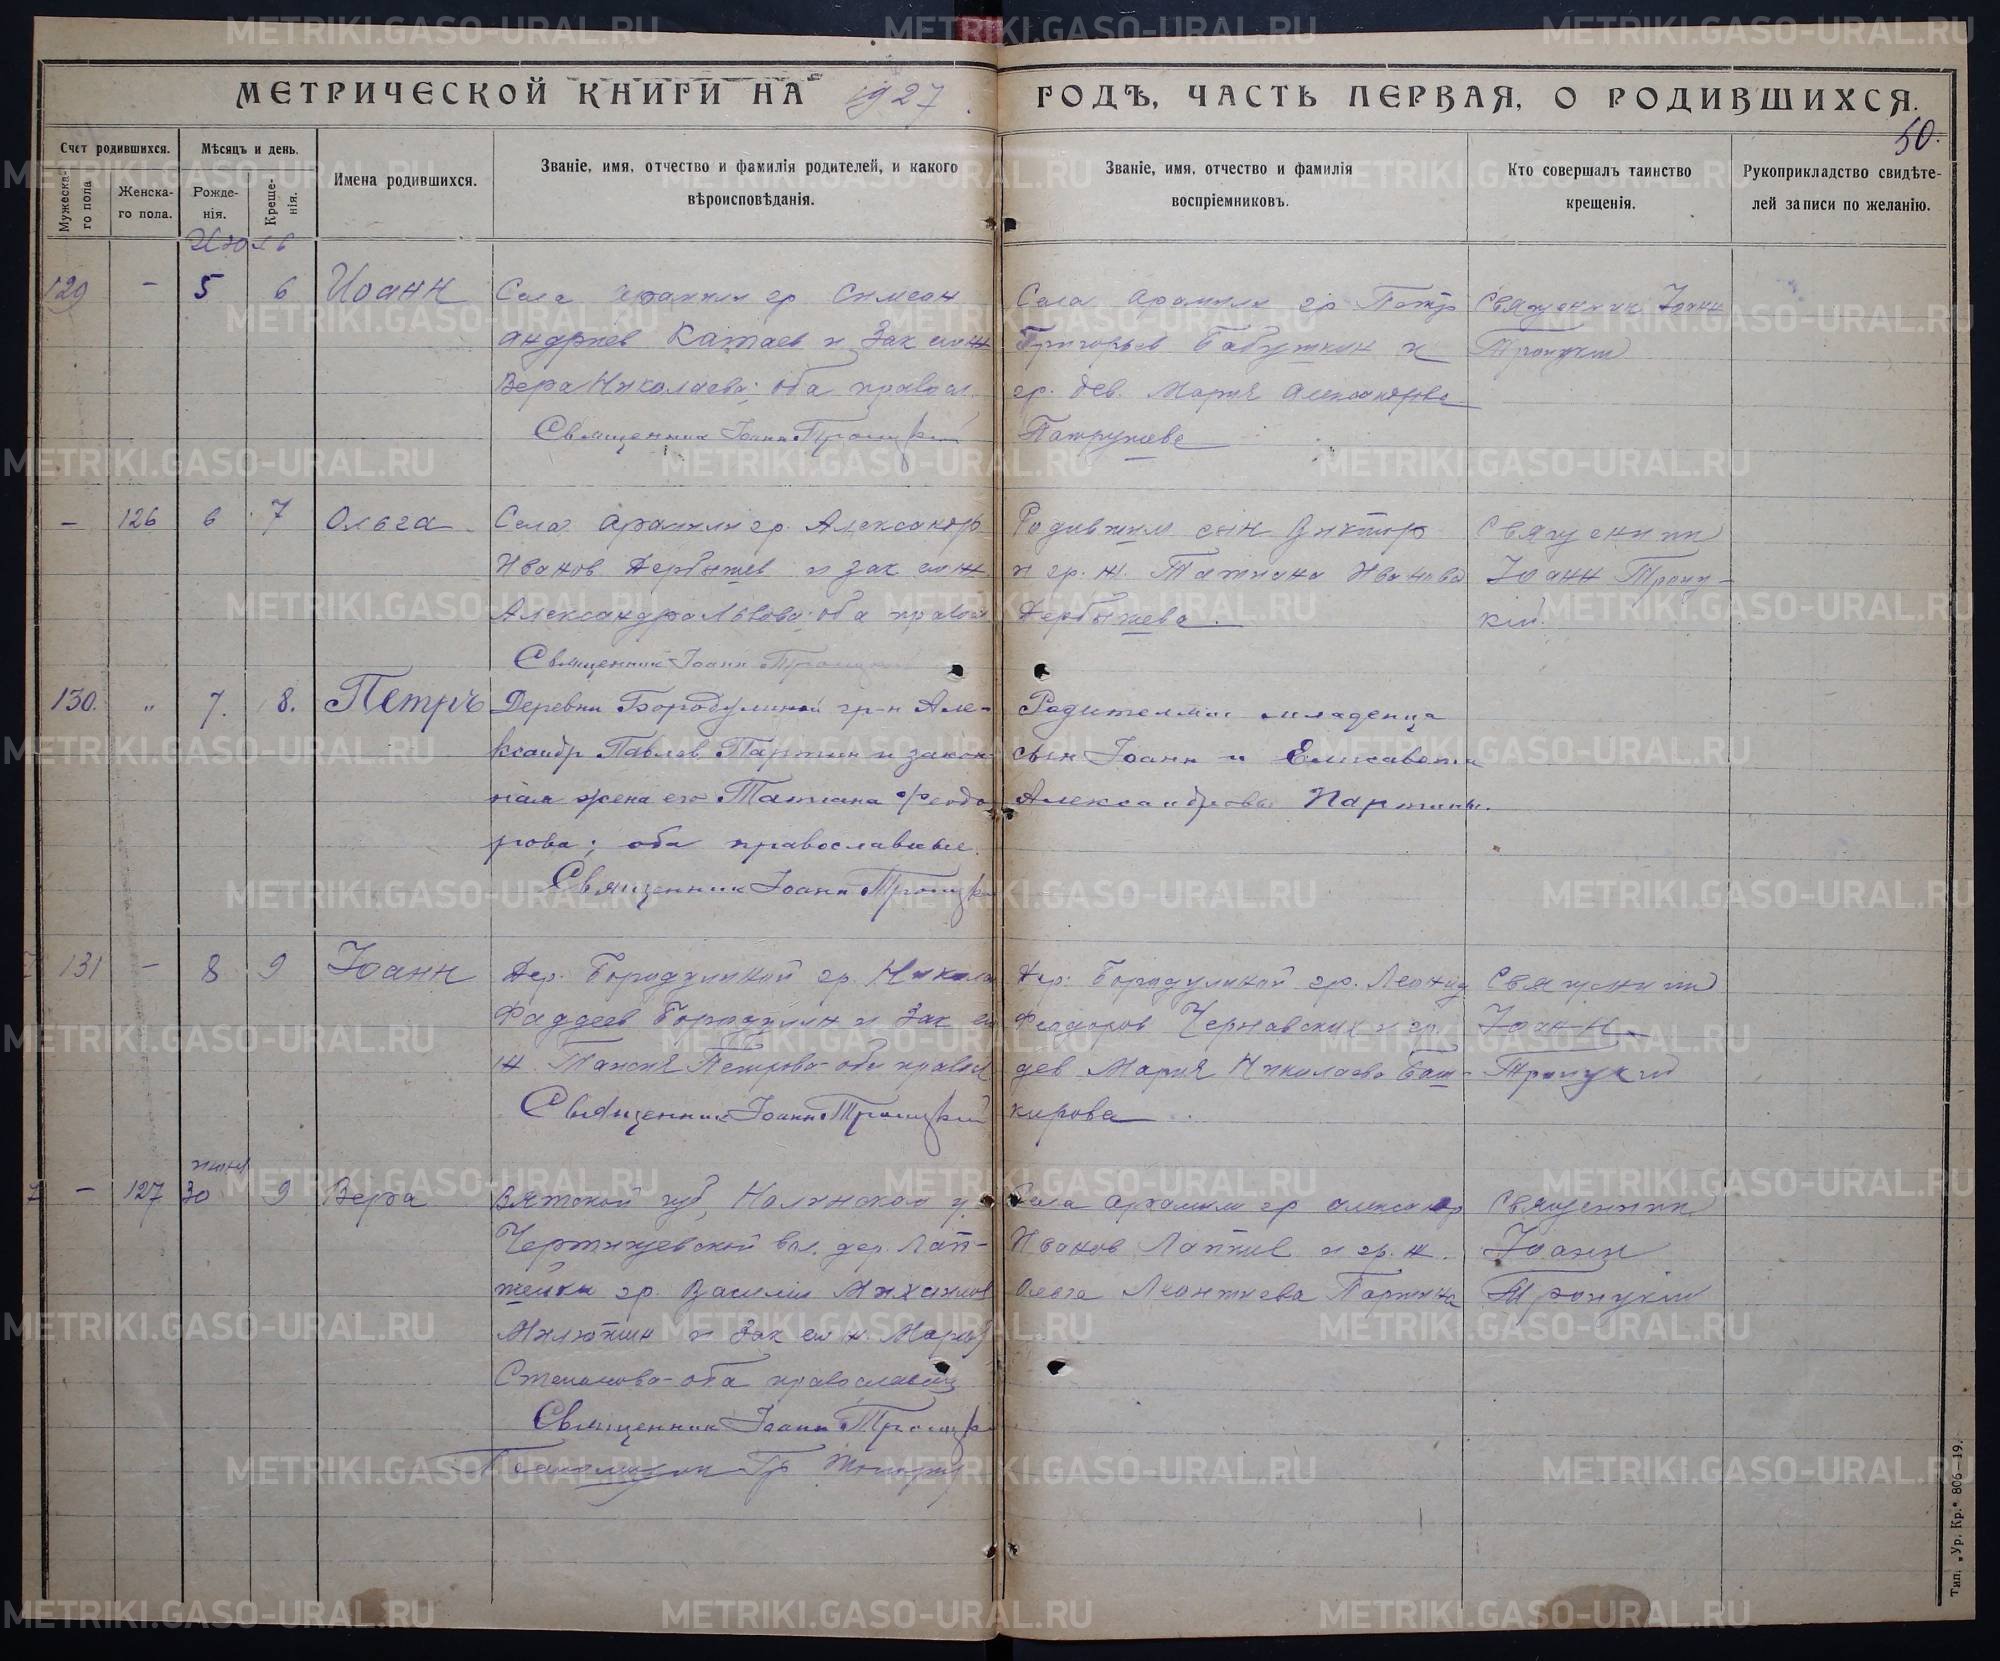 МЕТРИЧЕСКОЙ КНИГИ НА 1927
ГОДЪ, ЧАСТЬ ПЕРВАЯ, О РОДИВШИХСЯ.
50.
Счет родившихся.
Мѣсяцъ и день.
Мужеска-
го пола
Женска-
го пола.
Рожде-
нія.
Креще-
нія.
Имена родившихся.
Званіе, имя, отчество и фамилія родителей, и какого
вѣроисповѣданія.
Званіе, имя, отчество и фамилія
воспріемниковъ.
Кто совершалъ таинство
крещенія.
Рукоприкладство свидѣте-
лей записи по желанію.
Июль
129 - 5 6 Иоанн
Села Арамили гр Симеон
Андреев Катаев и Зак его ж
Вера Николаева; оба правосл.
Священник Іоанн Троицкій
Села Арамили гр Петр
Григорьев Бабушкин и
гр. дев. Мария Александрова
Патрушева
Священник Іоанн
Троицкий
- 126 6 7 Ольга
Села Арамили гр. Александр
Иванов Дербышев и зак его ж
Александра Львова; оба правосл
Священник Іоанн Троицкий
сын Виктор
и гр. ж. Татиана Иванова
Дербышева.
Священник
Іоанн Троиц-
кий.
130. " 7. 8. Петръ
Деревни Бородулиной гр-н Але-
ксандр Павлов Партин и закон-
ная жена его Татиана Феодо-
рова; оба православные.
Священник Іоанн Троицкій
младенца
сын Іоанн и Елисавета
Александровы Партины.
131 - 8 9 Іоанн
Дер. Бородулиной гр. Никола
Фаддеев Бородулин и Зак ег
ж. Таисия Петрова-оба правосл
Священник Іоанн Троицкий
Дер. Бородулиной гр. Леонид
Феодоров Чернавских и гр.
дев Мария Николаева Баш-
кирова
Священник
Іоанн
Троицкий
июня
- 127 30 9 Вера
Вятской губ, Нолинскаго у.
вол. дер. Лап-
гр. Василий Михаилов
Милютин и Зак его ж. Мария
Степанова-оба православн
Священник Іоанн Троицкій
Псаломщик Гр
Села Арамили гр Александр
Иванов Лаптев и гр. ж.
Ольга Леонтиева Партина
Священник
Іоанн
Троицкий
Тип. „Ур. Кр." 806—19.
METRIKI.GASO-URAL.RU